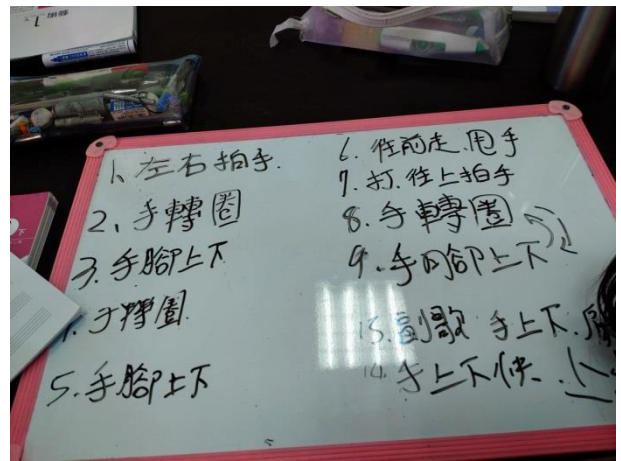 1、左右拍手.
2、手轉圈
3.手腳上下
手轉圈
5.手腳上下
6.往前走.甩手
7.打.往上拍手
8.手轉圈
9.手腳上下
副歌 手上下.
手上下快.